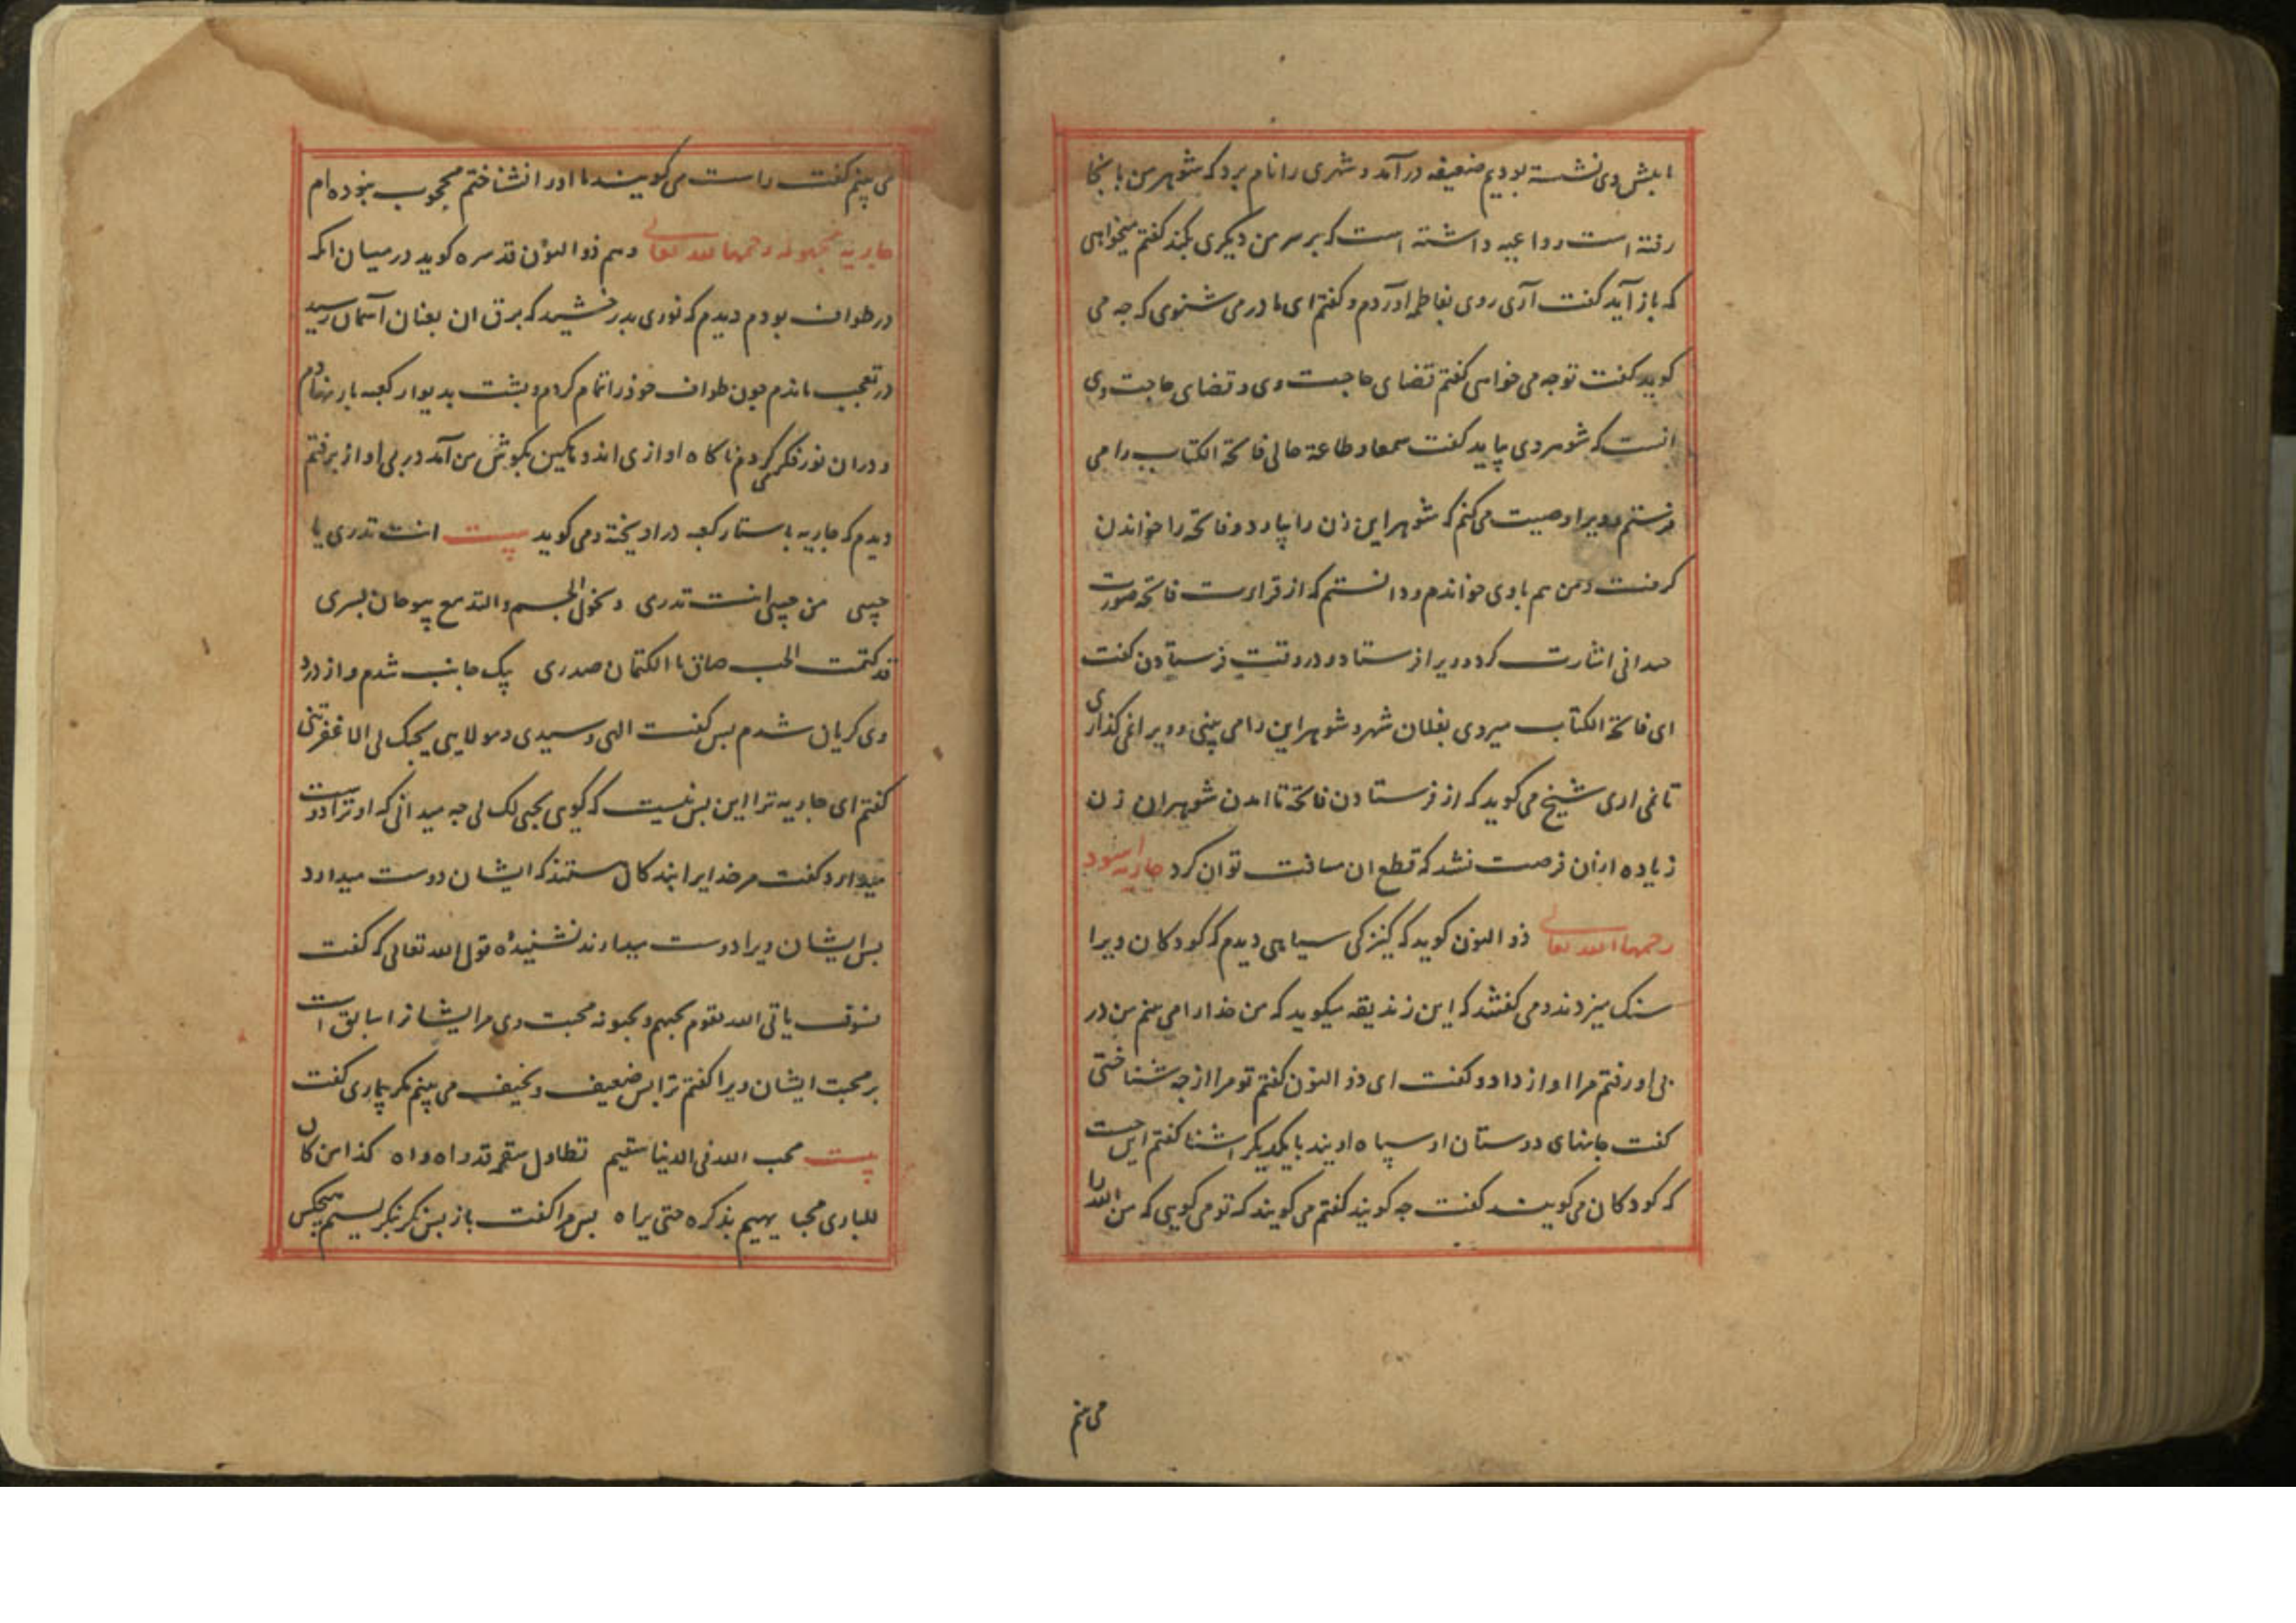 پیش وی نشسته بودیم ضعیفه درآمد و شهری را نام برد که شوهر من بانجا
رفته است و داعیه داشته است که بر سر من دیگری بکند گفتم میخواهی
که باز آید گفت آری روی بفاطمه آوردم و گفتم ای مادر می شنوی که چه می
کوید کفت تو چه می خواهی کفتم قضای حاجت وی و قضای حاجت وی
انست که شوهر وی بیاید کفت سمعا و طاعة حالی فاتحة الکتاب را می
فرستم و ویرا وصیت می کنم که شوهر این زن را بیارد و فاتحه را خواندن
کرفت و من هم با وی خواندم و دانستم که از قراءت فاتحه صورت
جدانی انشارت کرد و ویرا فرستاد و در وقت فرستادن کفت
ای فاتحة الکتاب میروی بفلان شهر و شوهر این را می بینی و ویرا نمی کذاری
تا نمی اری شیخ می کوید که از فرستادن فاتحه تا امدن شوهر ان زن
زیاده ازان فرصت نشد که قطع ان مسافت توان کرد جاریه اسود
رحمها الله تعالی ذو النون کوید که کنیزکی سیاهی دیدم که کودکان ویرا
سنک میزدند و می کفتند که این زندیقه میکوید که من خدا را می بینم من در
پی او رفتم مرا اواز داد و کفت ای ذو النون کفتم تو مرا از چه شناختی
کفت جانهای دوستان او سپاه اویند با یکدیکر اشنا کفتم این چیست
که کودکان می کویند کفت چه کویند کفتم می کویند که تو می کویی که من الله را
می بینم
می بینم کفت راست می کویند تا او را نشناختم محجوب نبوده ام
جاریه مجهوله رحمها الله تعالی و هم ذو النون قدسره کوید در میان انکه
در طواف بودم دیدم که نوری بدرخشید که برق ان بعنان آسمان رسید
در تعجب ماندم چون طواف خود را تمام کردم و پشت بدیوار کعبه باز نهادم
و در ان نور فکر می کردم ناکاه اوازی اندوهکین بکوش من آمد در پی اواز برفتم
دیدم که جاریه باستار کعبه در اویخته و می کوید بیت انت تدری یا
حبیبی من حبیبی انت تدری و نحول الجسم و الدمع یبوحان بسری
قد کتمت الحب صاق بالکتمان صدری یک جانب شدم و از درد
وی کریان شدم بس کفت الهی و سیدی و مولایی بحبک لی الا غفرتنی
کفتم ای جاریه ترا این بس نیست که کوی بحبی لک لی چه میدانی که او ترا دوست
میدارد کفت مر خدایرا بندکان هستند که ایشان دوست میدارد
بس ایشان ویرا دوست میدارند نشنیدهٔ قول الله تعالی که کفت
فسوف یاتی الله بقوم یحبهم و یحبونه محبت وی مر ایشانرا سابق است
بر محبت ایشان ویرا کفتم ترا بس ضعیف و نحیف می بینم مکر بیماری کفت
بیت محب الله فی الدنیا سقیم تطاول سقمه فدواه داه کذا من کان
للباری محبا یهیم بذکره حتی یراه بس مرا کفت باز بس نکر نکریستم هیچکس